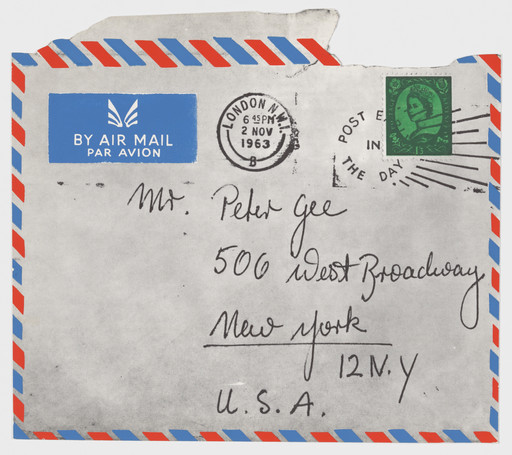 BY AIR MAIL
PAR AVION
LONDON N.W.1.
6 45 PM
2 NOV
1963
B
POST E
IN
THE DAY
Mr. Peter Gee
506 West Broadway
New York
12 N.Y
U. S. A.